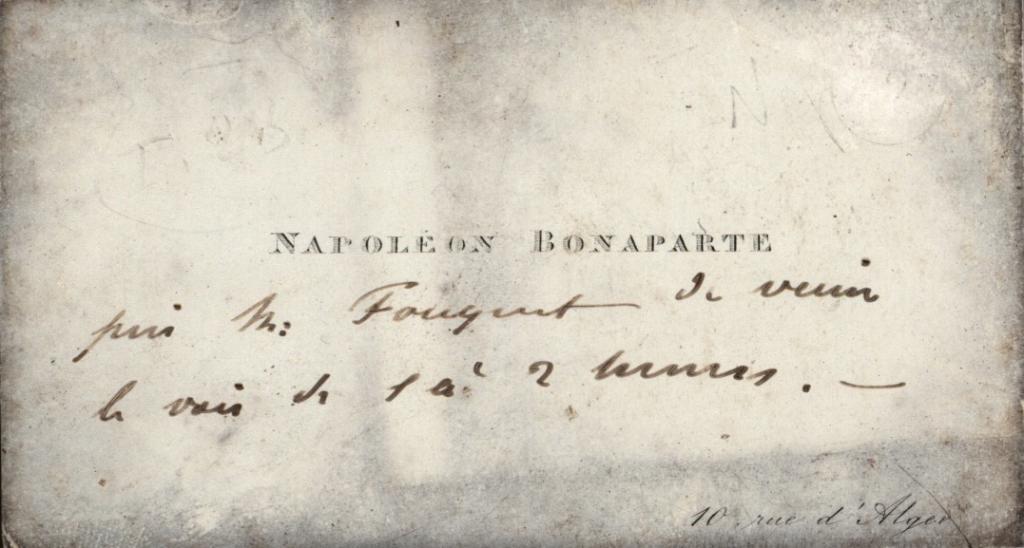 NAPOLÉON BONAPARTE
prie M. Fouquet de venir
le voir de 1 à 2 heures. —
10, rue d'Alger